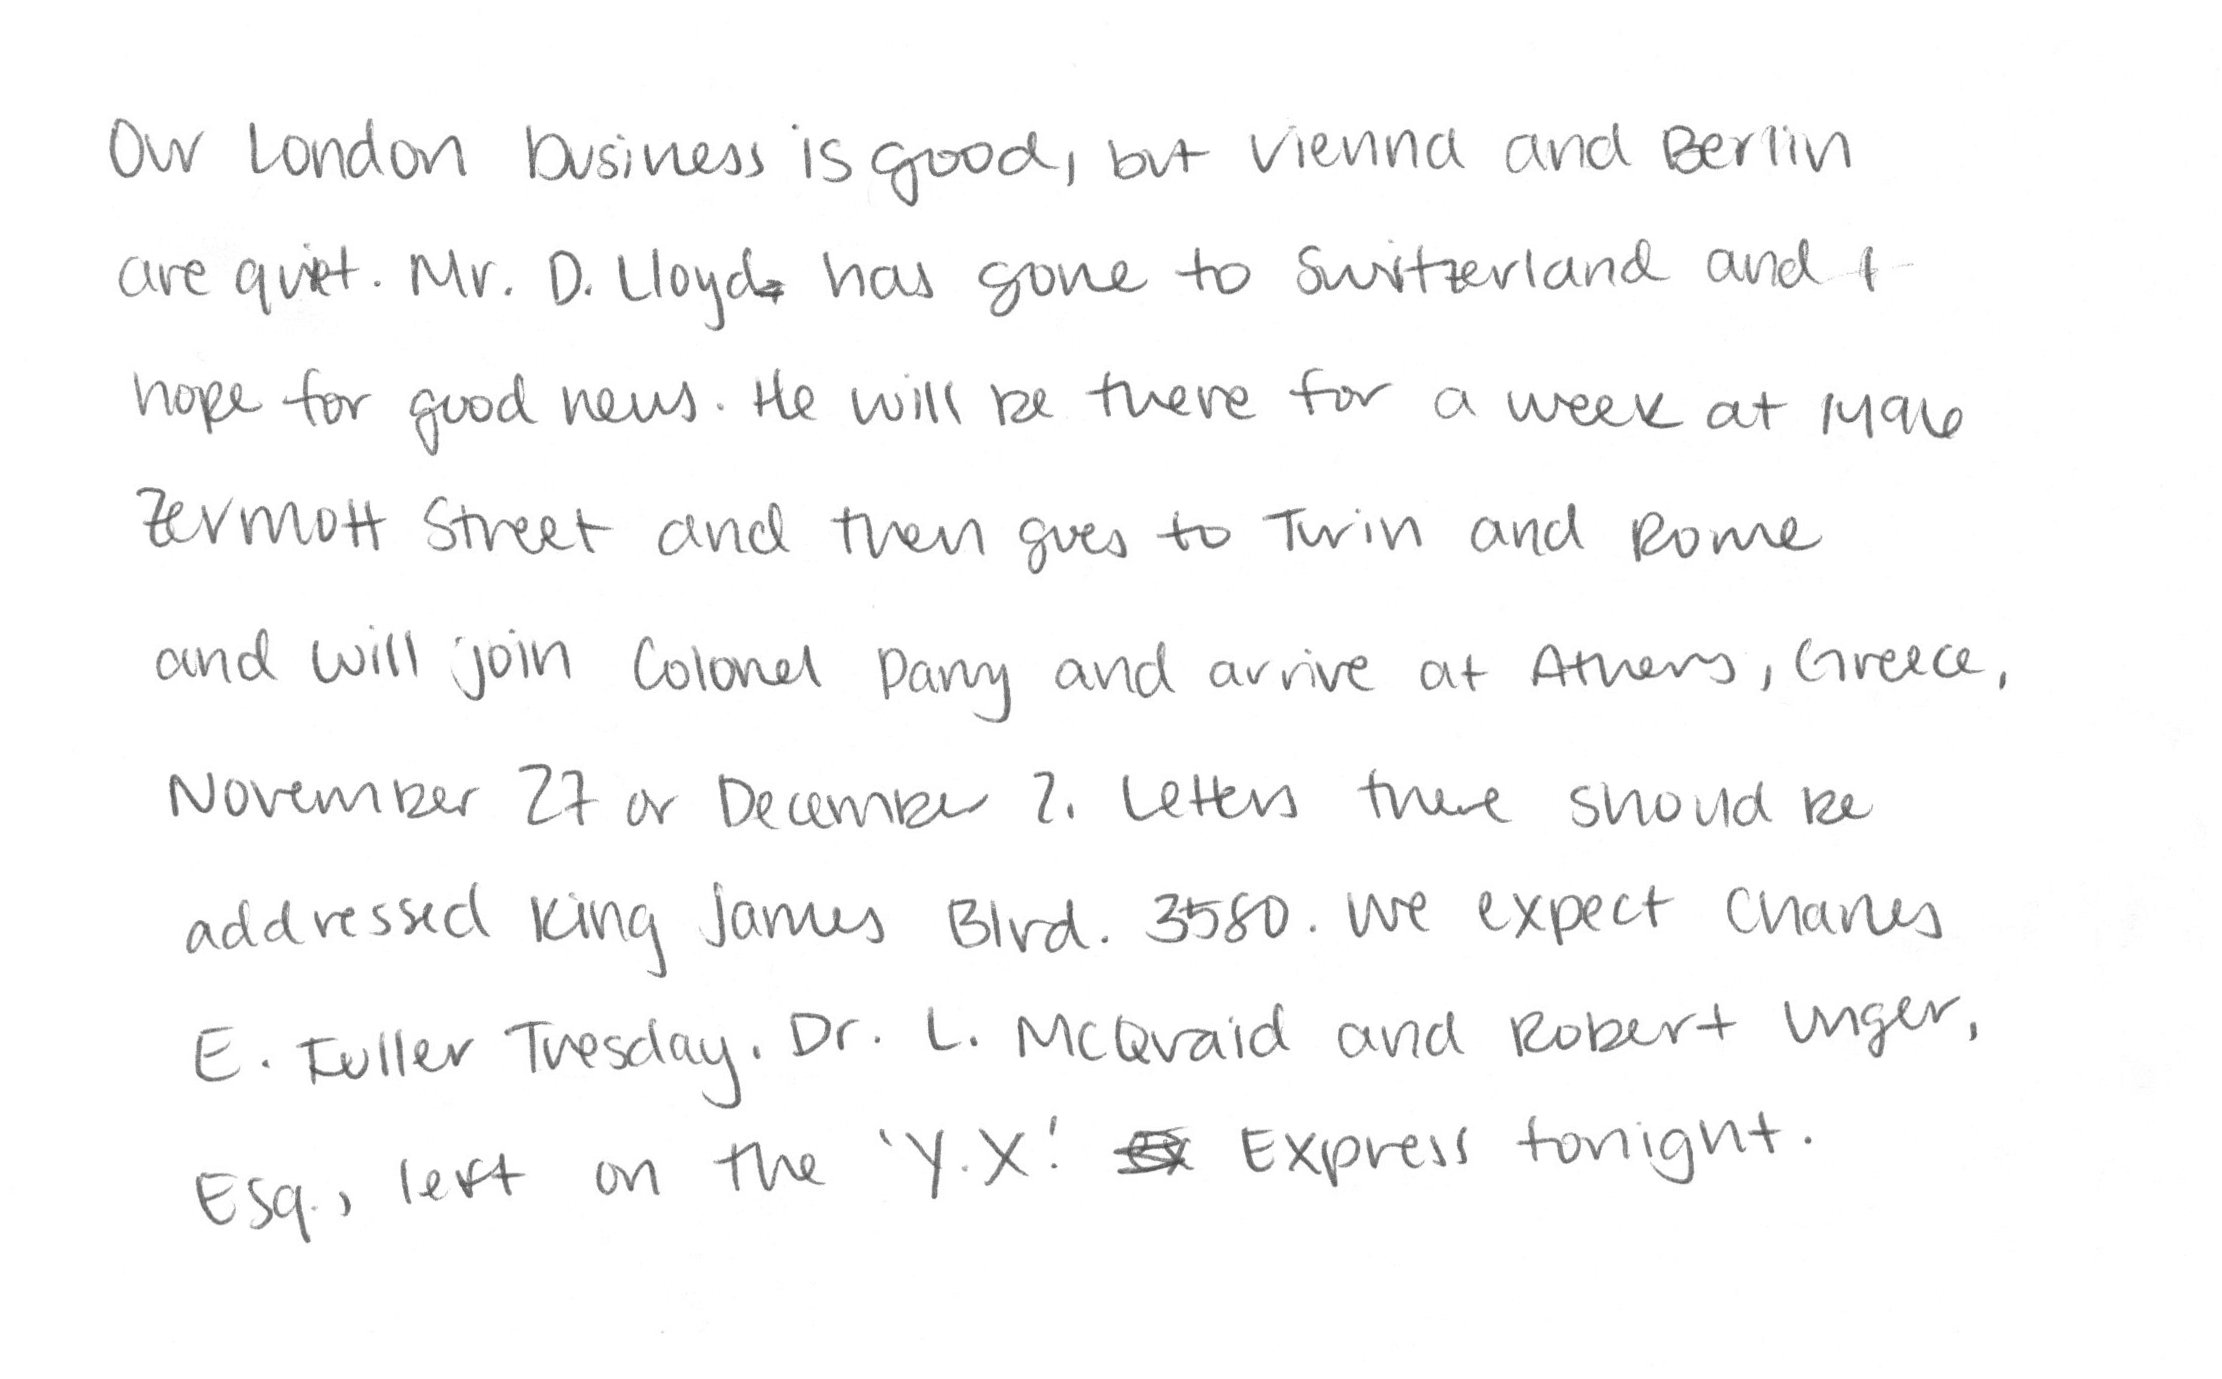 Our London business is good, but Vienna and Berlin
are quiet. Mr. D. Lloyd has gone to Switzerland and I
hope for good news. He will be there for a week at 1496
Zermott Street and then goes to Turin and Rome
and will join Colonel Parry and arrive at Athens, Greece,
November 27 or December 2. Letters there should be
addressed King James Blvd. 3580. We expect Charles
E. Fuller Tuesday. Dr. L. McQuaid and Robert Unger,
Esq., left on the 'Y.X.' Express tonight.